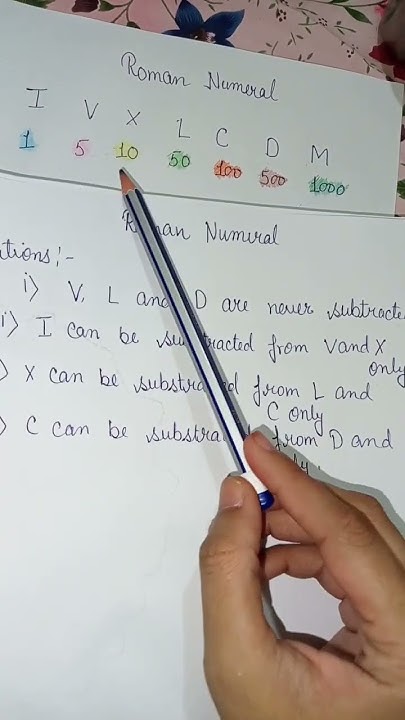 Roman Numeral
I V X L C D M
1 5 10 50 100 500 1000
Roman Numeral
ations:-
i) V, L and D are never subtracte
i) I can be subtracted from V and X
only
) X can be substracted from L and
C only
) C can be substracted from D and